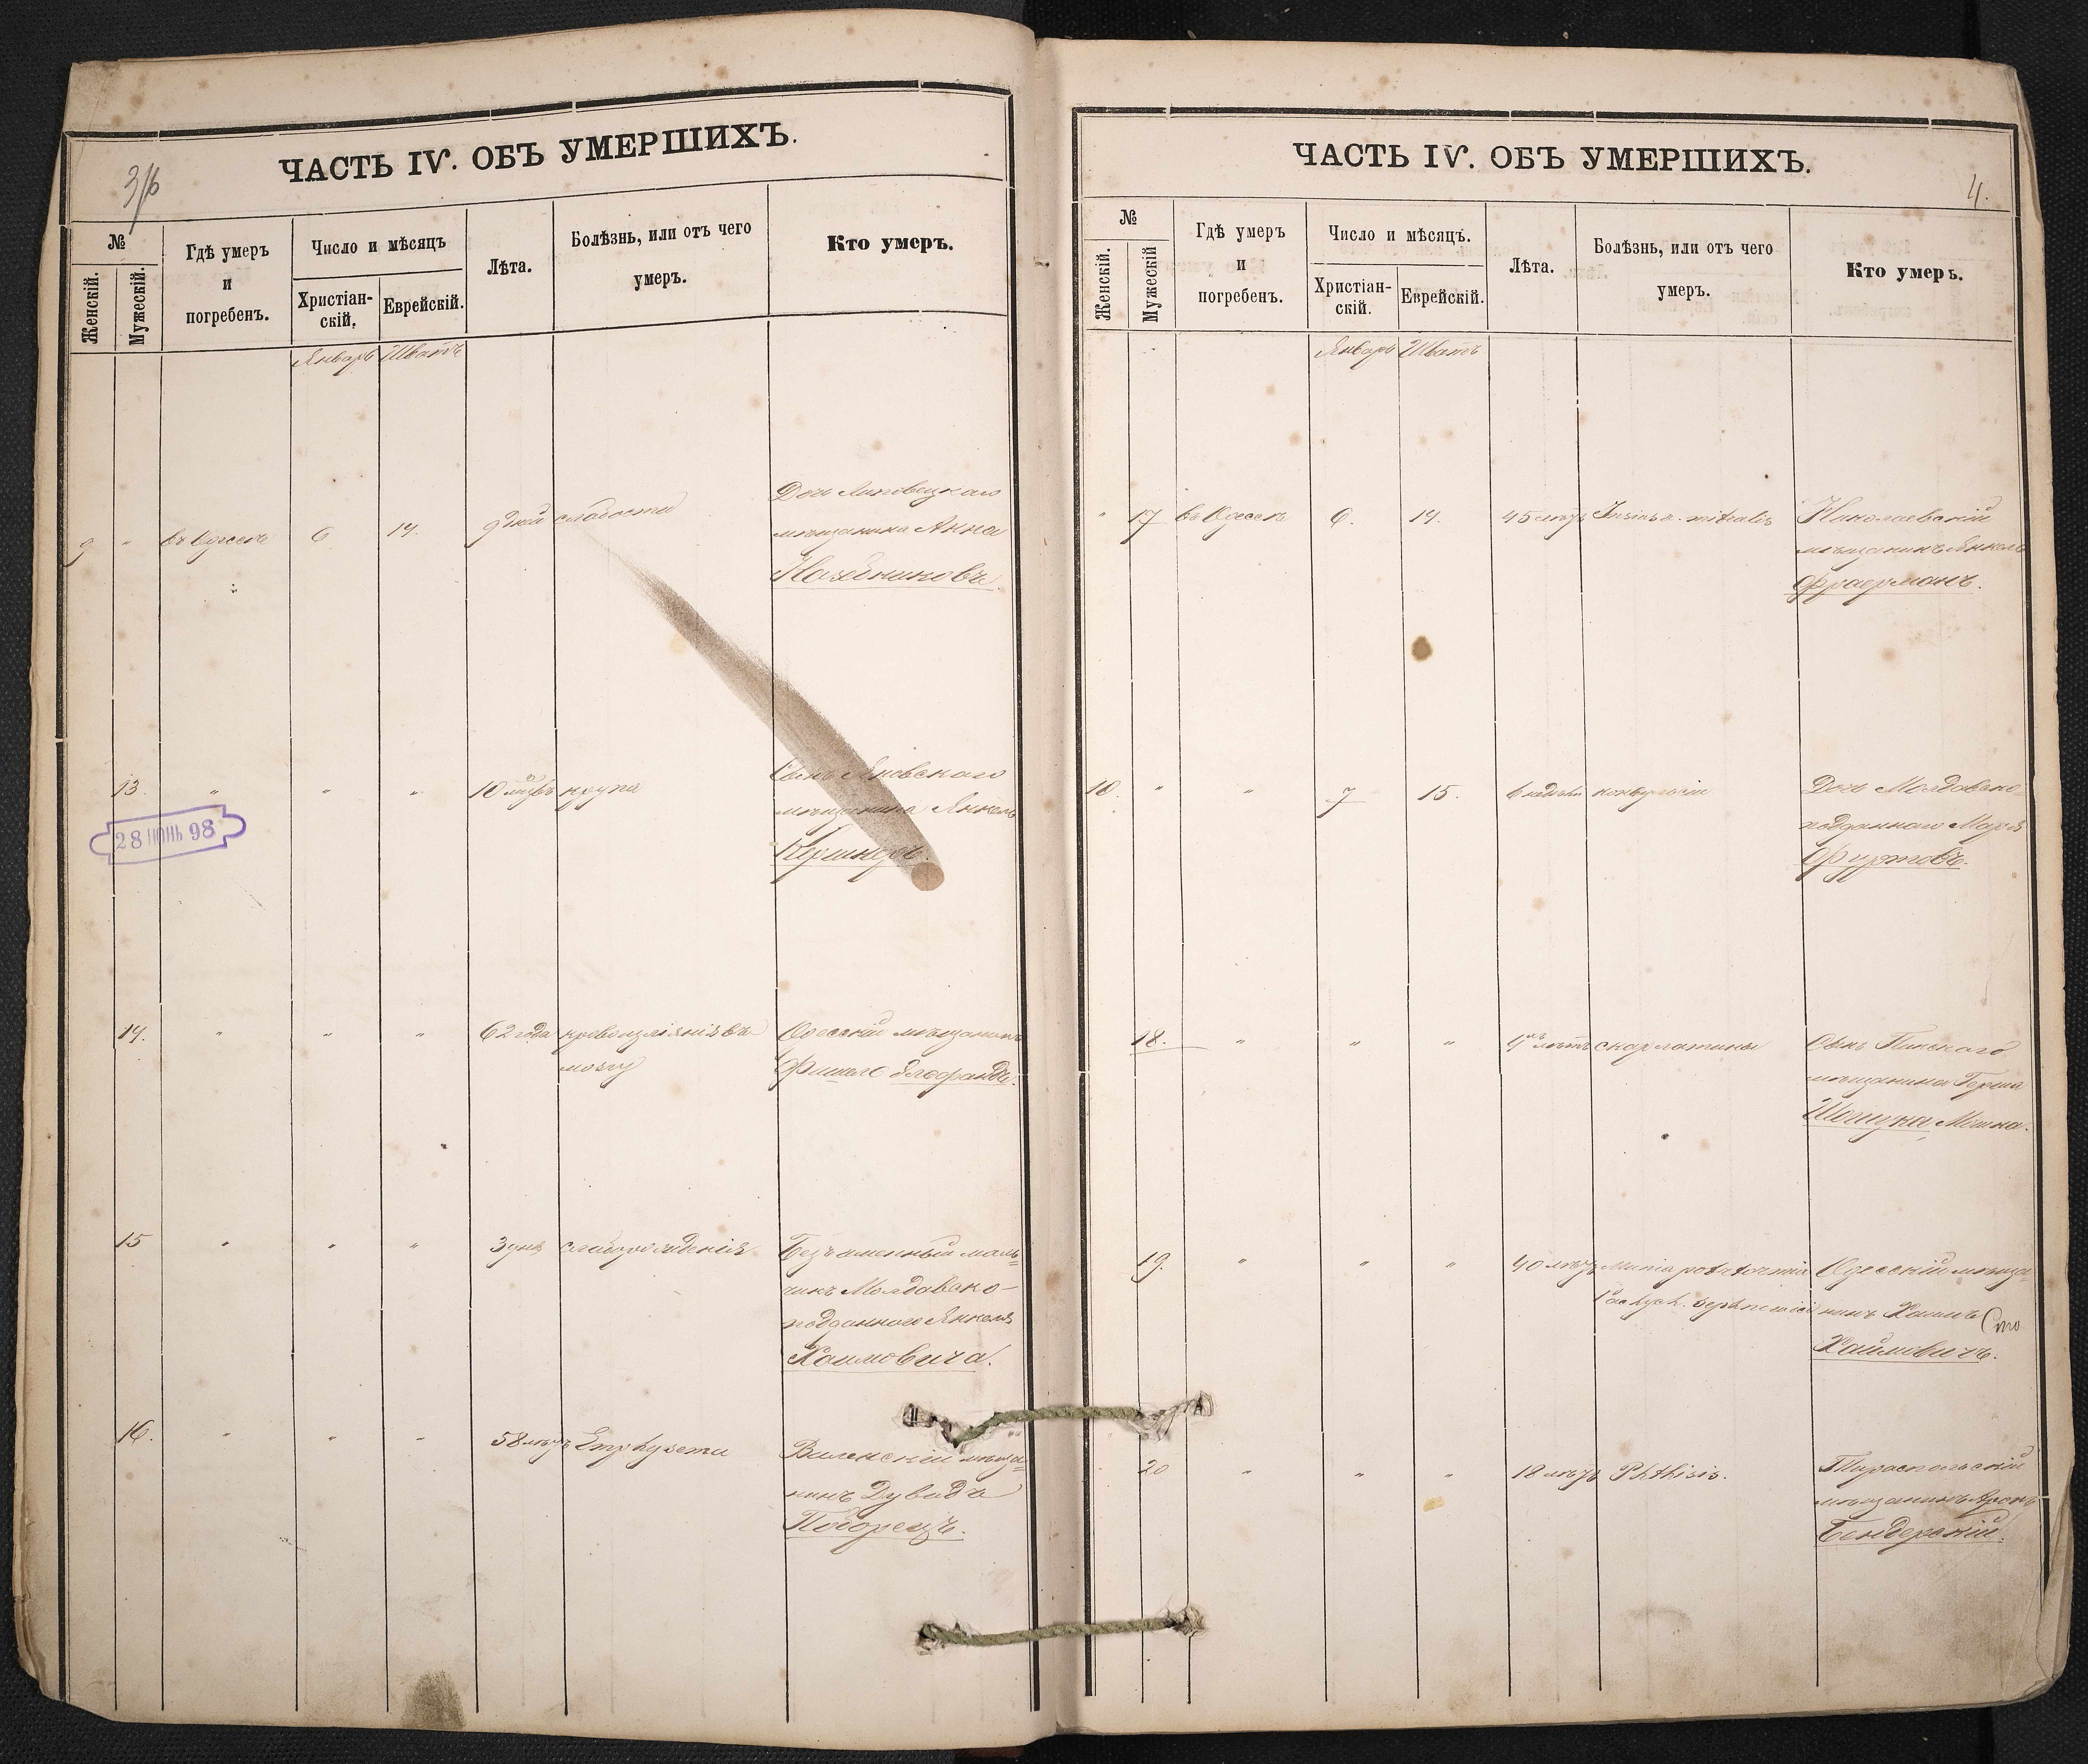 ЧАСТЬ IV. ОБЪ УМЕРШИХЪ.
№
Женскій.
Мужескій.
Гдѣ умеръ
и
погребенъ.
Число и мѣсяцъ
Христіан-
скій.
Еврейскій.
Лѣта.
Болѣзнь, или отъ чего
умеръ.
Кто умеръ.
Январь Шватъ
9 " въ Одессѣ 6 14. 9 дней слабости Дочь Липовецкаго
мѣщанина Анна
13. " " " 10 крупа Сынъ Яновскаго
мѣщанина Янкель
28 ІЮНЬ 98
14. " " " 62 года кровоизліянія въ Одесскій мѣщанинъ
мозгу Фишель
15 " " " 3 дня слаборожденія Безъименный маль=
чикъ Молдавско-
подданнаго Янкеля
Хаимовича.
16. " " " 58 лѣтъ Emphysema Виленскій мѣща=
нинъ Дувидъ
Погорецъ.
ЧАСТЬ IV. ОБЪ УМЕРШИХЪ.
4.
№
Женскій.
Мужескій
Гдѣ умеръ
и
погребенъ.
Число и мѣсяцъ.
Христіан-
скій.
Еврейскій.
Лѣта.
Болѣзнь, или отъ чего
умеръ.
Кто умеръ.
Январь Шватъ
" 17 въ Одессѣ 6. 14. 45 лѣтъ mitralis Николаевскій
мѣщанинъ Янкель
Фраерманъ.
10. " " 7 15. 6 недѣль Дочь Молдавско-
подданнаго Марія
18. " " " лѣтъ скарлатины Сынъ Пинскаго
мѣщанина Герша
19. " " " 40 лѣтъ Одесскій мѣща=
нинъ Хаимъ
Хаимовичъ.
20 " " " 18 лѣтъ Phthisis. Тираспольскій
мѣщанинъ Аронъ
Бендерскій.